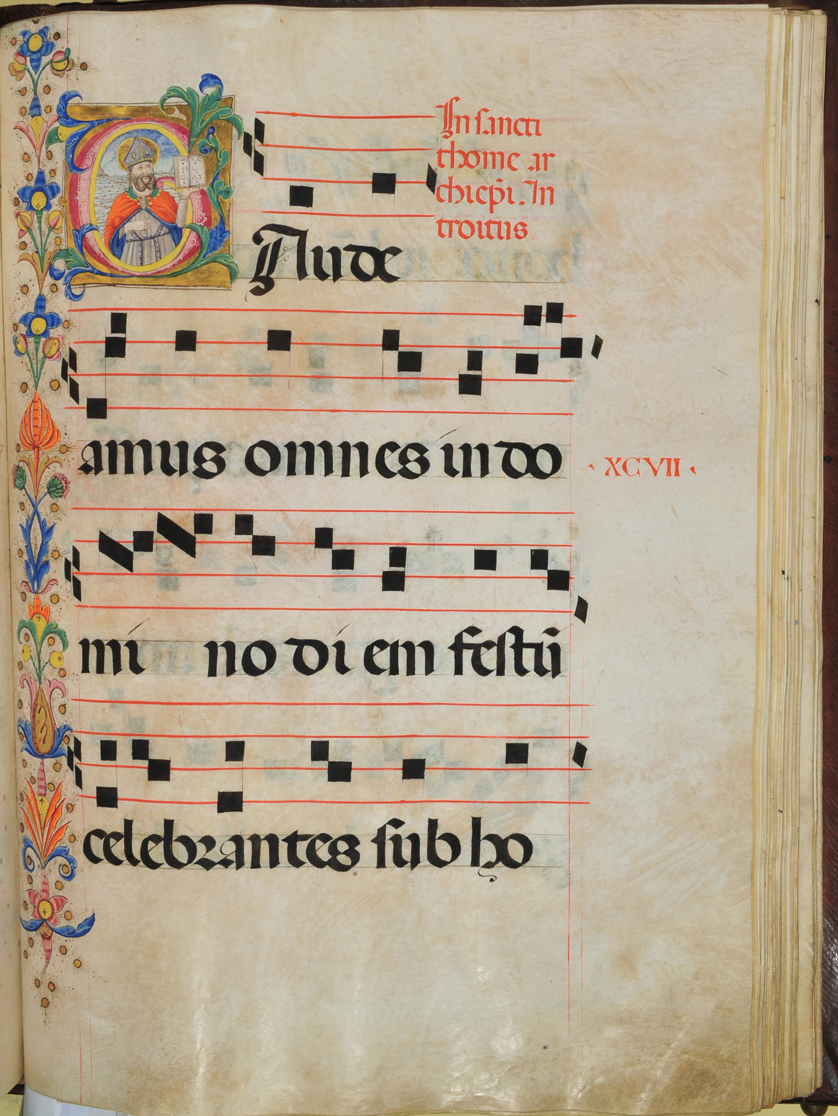 In sancti
thome ar
chiep̄i. In
troitus
GAude
amus omnes in do
· XCVII ·
mi no di em festū
celebrantes sub ho